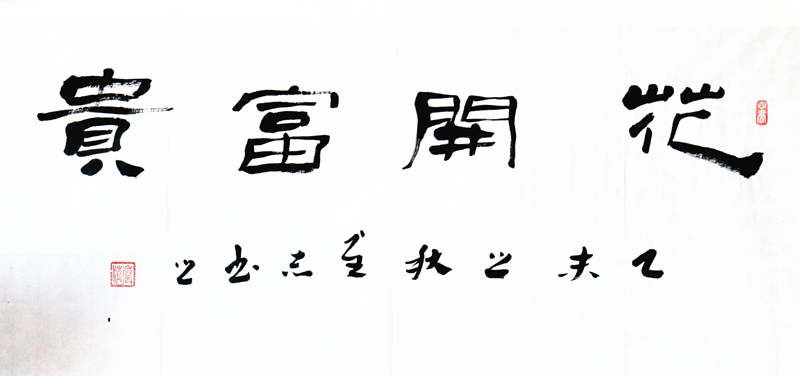 花開富貴
乙未之秋重志书之